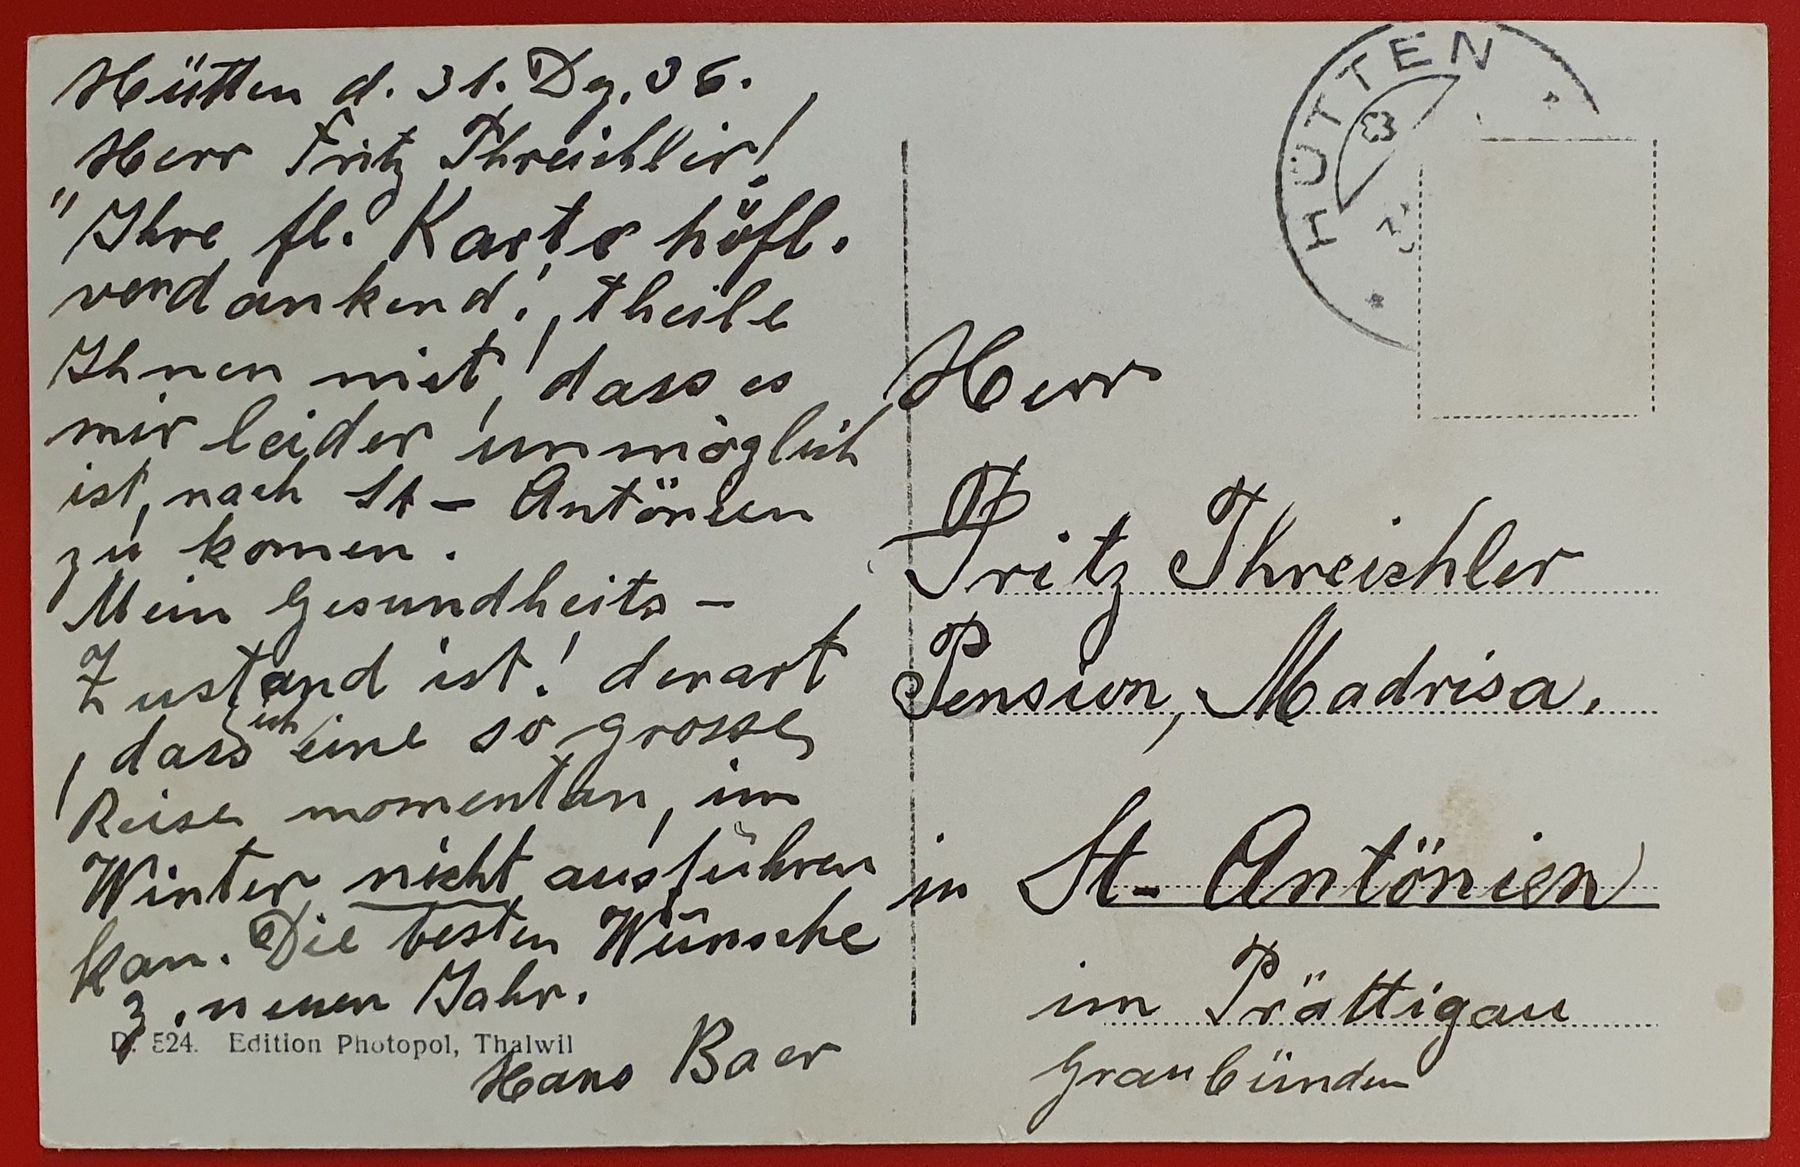 Hütten d. 31. Dz. 36.
Herr Fritz Threichler!
"Ihre fl. Karte höfl.
verdankend!, theile
Ihnen mit, dass es
mir leider unmöglich
ist, nach St- Antönien
zu komen.
Mein Gesundheits-
Zustand ist! derart
, dass ich eine so grosse
Reise momentan, im
Winter nicht ausführen
kan. Die besten Wünsche
z. neuen Jahr.
Hans Baer
D. 524. Edition Photopol, Thalwil
HÜTTEN
Herr
Fritz Threichler
Pension, Madrisa,
in St- Antönien
im Prättigau
Graubünden